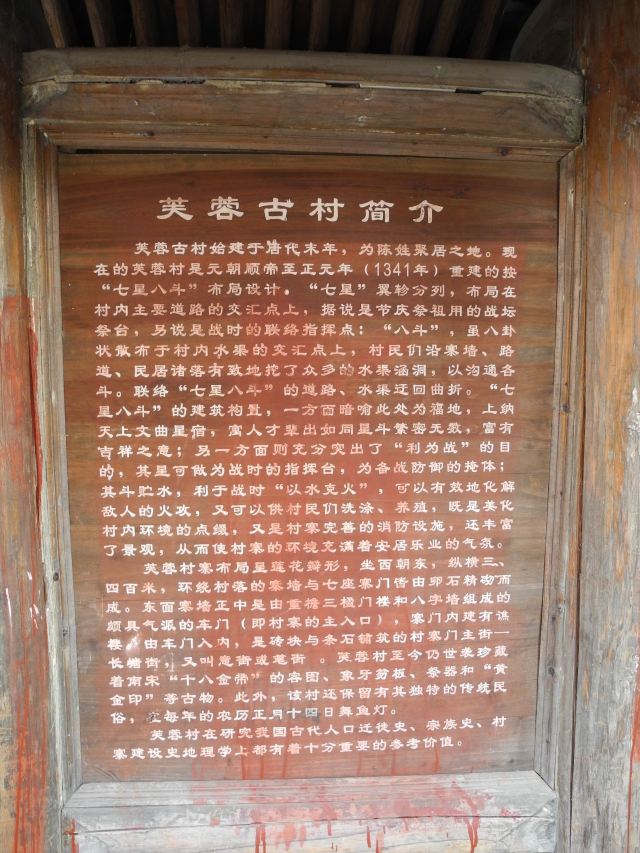 芙蓉古村简介
芙蓉古村始建于唐代末年，为陈姓聚居之地。现
在的芙蓉村是元朝顺帝至正元年（1341年）重建的按
“七星八斗”布局设计。“七星”翼轸分列，布局在
村内主要道路的交汇点上，据说是节庆祭祖用的战坛
祭台，另说是战时的联络指挥点：“八斗”，虽八卦
状散布于村内水渠的交汇点上，村民们沿寨墙、路
道、民居诸落有致地挖了众多的水渠涵洞，以沟通各
斗。联络“七星八斗”的道路、水渠迂回曲折。“七
星八斗”的建筑构置，一方面暗喻此处为福地，上纳
天上文曲星宿，寓人才辈出如同星斗繁密无数，富有
吉祥之意；另一方面则充分突出了“利为战”的目
的，其星可做为战时的指挥台，为备战防御的掩体；
其斗贮水，利于战时“以水克火”，可以有效地化解
敌人的火攻，又可以供村民们洗涤、养殖，既是美化
村内环境的点缀，又是村寨完善的消防设施，还丰富
了景观，从而使村寨的环境充满着安居乐业的气氛。
芙蓉村寨布局呈莲花瓣形，坐西朝东，纵横三、
四百米，环绕村落的寨墙与七座寨门皆由卵石精砌而
成。东面寨墙正中是由重檐三楹门楼和八字墙组成的
颇具气派的车门（即村寨的主入口），寨门内建有谯
楼。由车门入内，是砖块与条石铺筑的村寨门主街一
长塘街，又叫意街或笔街 。芙蓉村至今仍世袭珍藏
着南宋“十八金带”的容图、象牙剪板、祭器和“黄
金印”等古物。此外，该村还保留有其独特的传统民
俗，在每年的农历正月十四日舞鱼灯。
芙蓉村在研究我国古代人口迁徙史、宗族史、村
寨建设史地理学上都有着十分重要的参考价值。